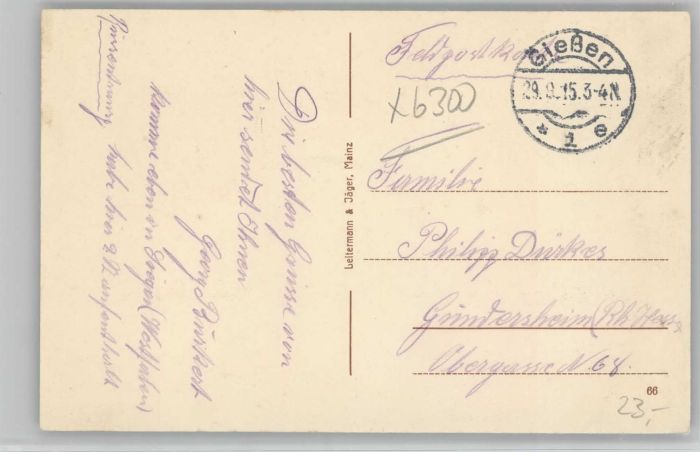 Feldpostkarte
Gießen
29. 9. 15. 3-4 N.
* 1 e
x6300
Familie
Philipp Dürkes
Gundersheim (Rh. Hess
Obergasse N 68.
66
23,-
Leitermann & Jäger, Mainz
Die besten Grüsse von
hier sendet Ihnen
Georg
Komme eben von Siegen (Westfalen)
habe hier 2 St aufenthalt